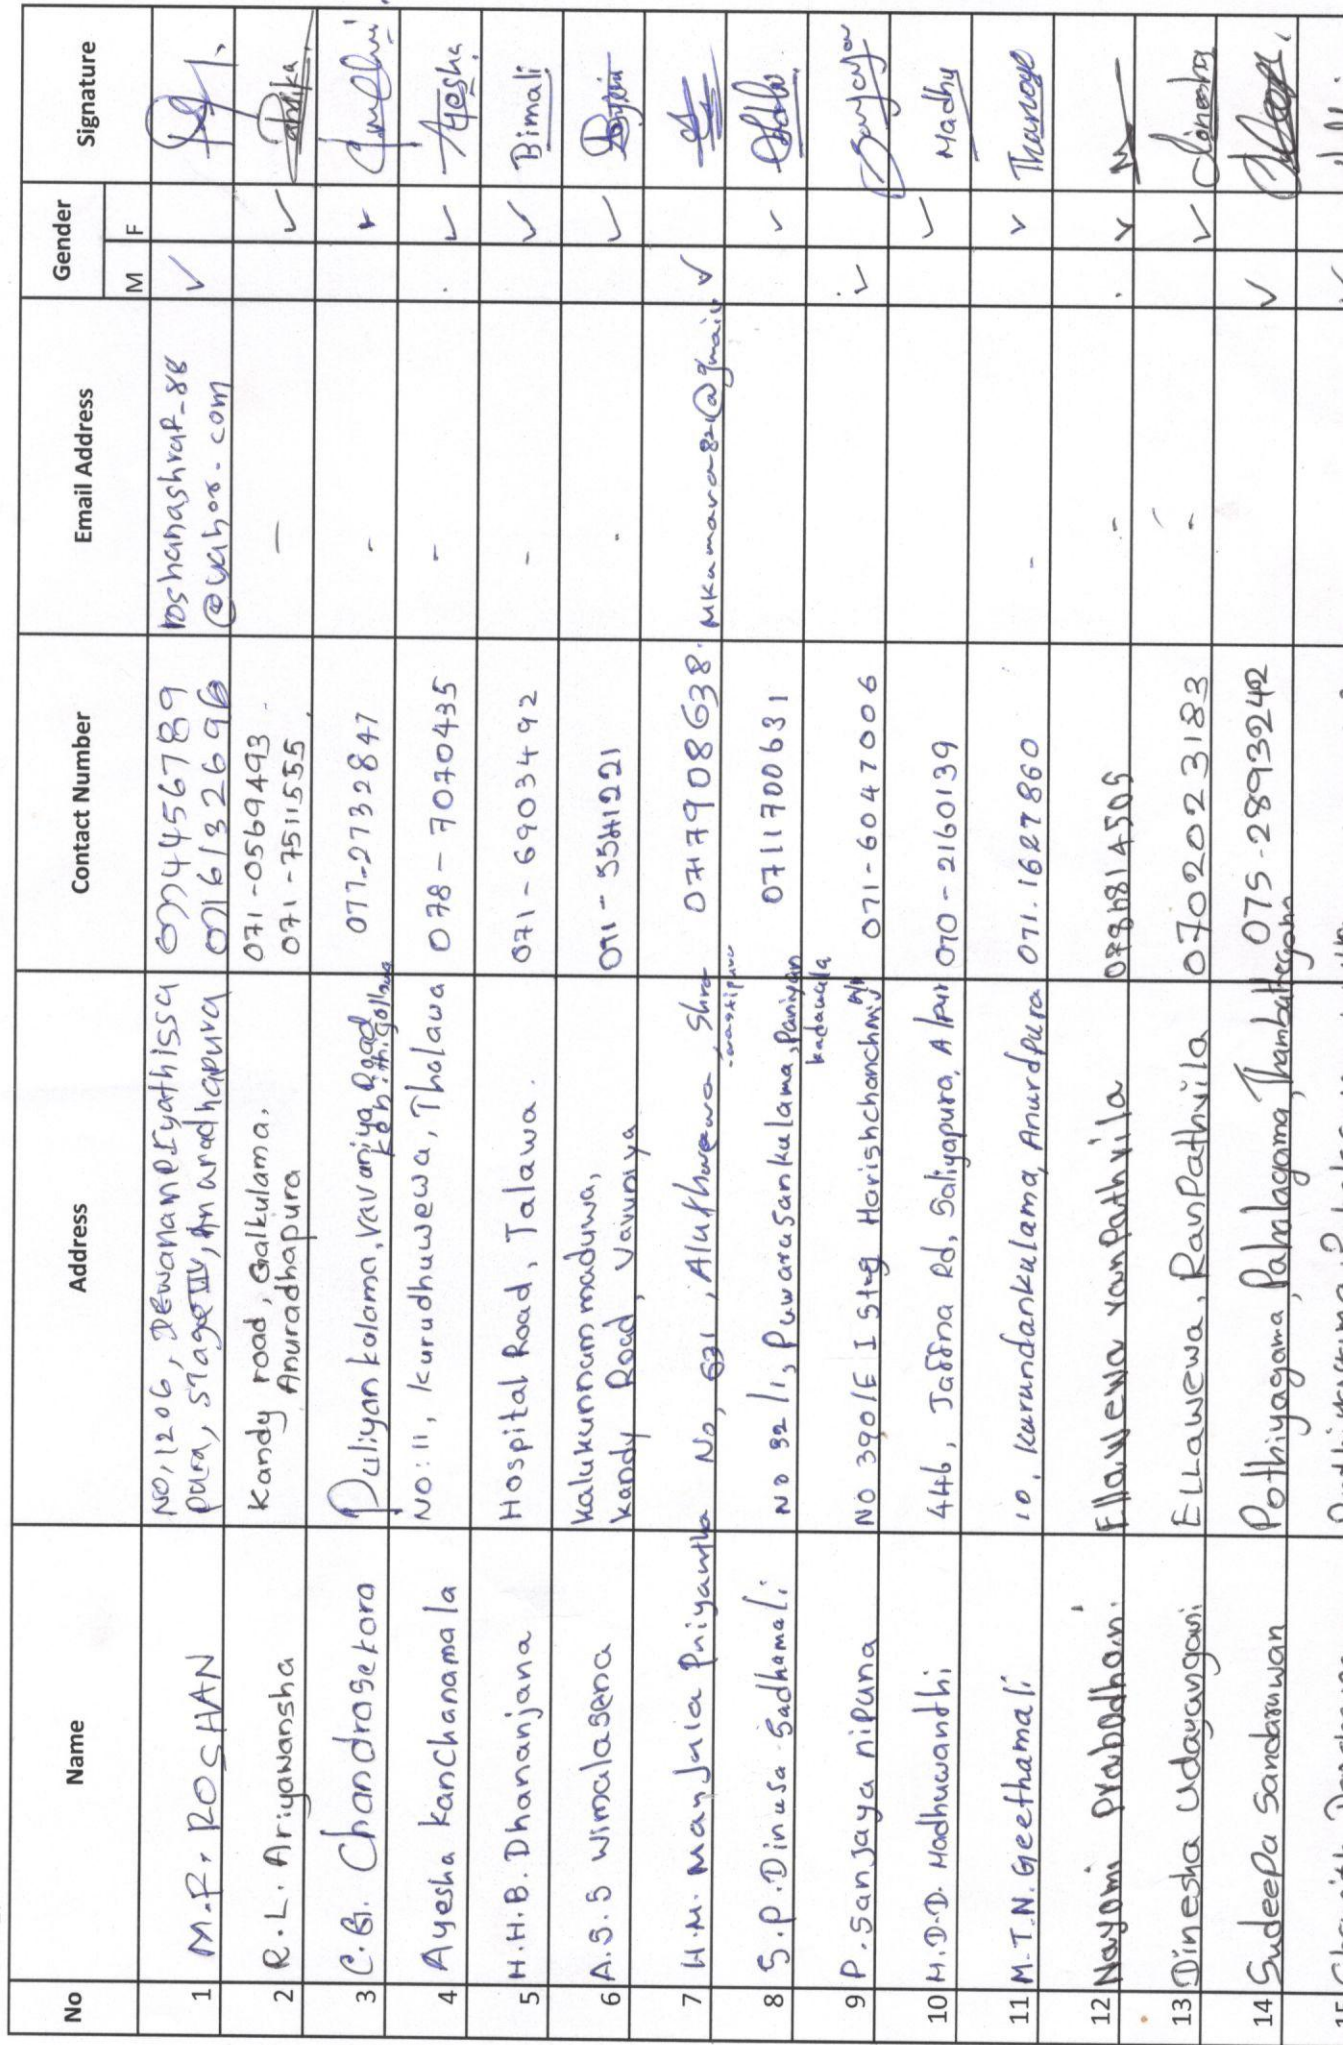 No Name Address Contact Number Email Address Gender Signature
M F
1 M.F. ROSHAN No,1206, Dewananpiyathissa pura, stage IV, Anuradhapura 0774456789 0716132696 roshanashraf_88 @yahoo.com ✓
2 R.L. Ariyawansha Kandy road, Galkulama, Anuradhapura 071-0569493 071-7511555 - ✓
3 C.G. Chandrasekara Puliyankalama, Vavuniya Road Kabithigollawa 077-2732847 - ✓
4 Ayesha Kanchanamala NO:11, Kurudhuwewa, Thalawa 078-7070435 - ✓ Ayesha
5 H.H.B. Dhananjana Hospital Road, Talawa. 071-6903492 - ✓ Bimali
6 A.S.S Wimalasena Kalukunnammaduwa, Kandy Road, Vavuniya - ✓
7 H.M. Manjula Priyantha No, 631, Aluthwewa, 0717908638. ✓
8 S.P. Dinusa Sadhamali No 92/1, Puwarasankulama, Paniyan kadawala 0711700631 ✓
9 P. Sanjaya nipuna NO 390/E I Stag Harishchandra 071-6047006 ✓ Sanjaya
10 H.D.D. Madhuwanthi 446, Jaffna Rd, Saliyapura, 070-2160139 ✓ Madhu
11 M.T.N. Geethamali 10, Kurundankulama, Anurdpura 071.1627860 - ✓
12 Nayomi prabodhani Ellawewa ranpathvila - ✓
13 Dinesha Udayangani ELLawewa, RanPathvila 0702023183 - ✓ Dinesha
14 Sudeepa Sandaruwan Pothiyagama, Pahalagama, Thambuttegama 075-2893242 ✓
15